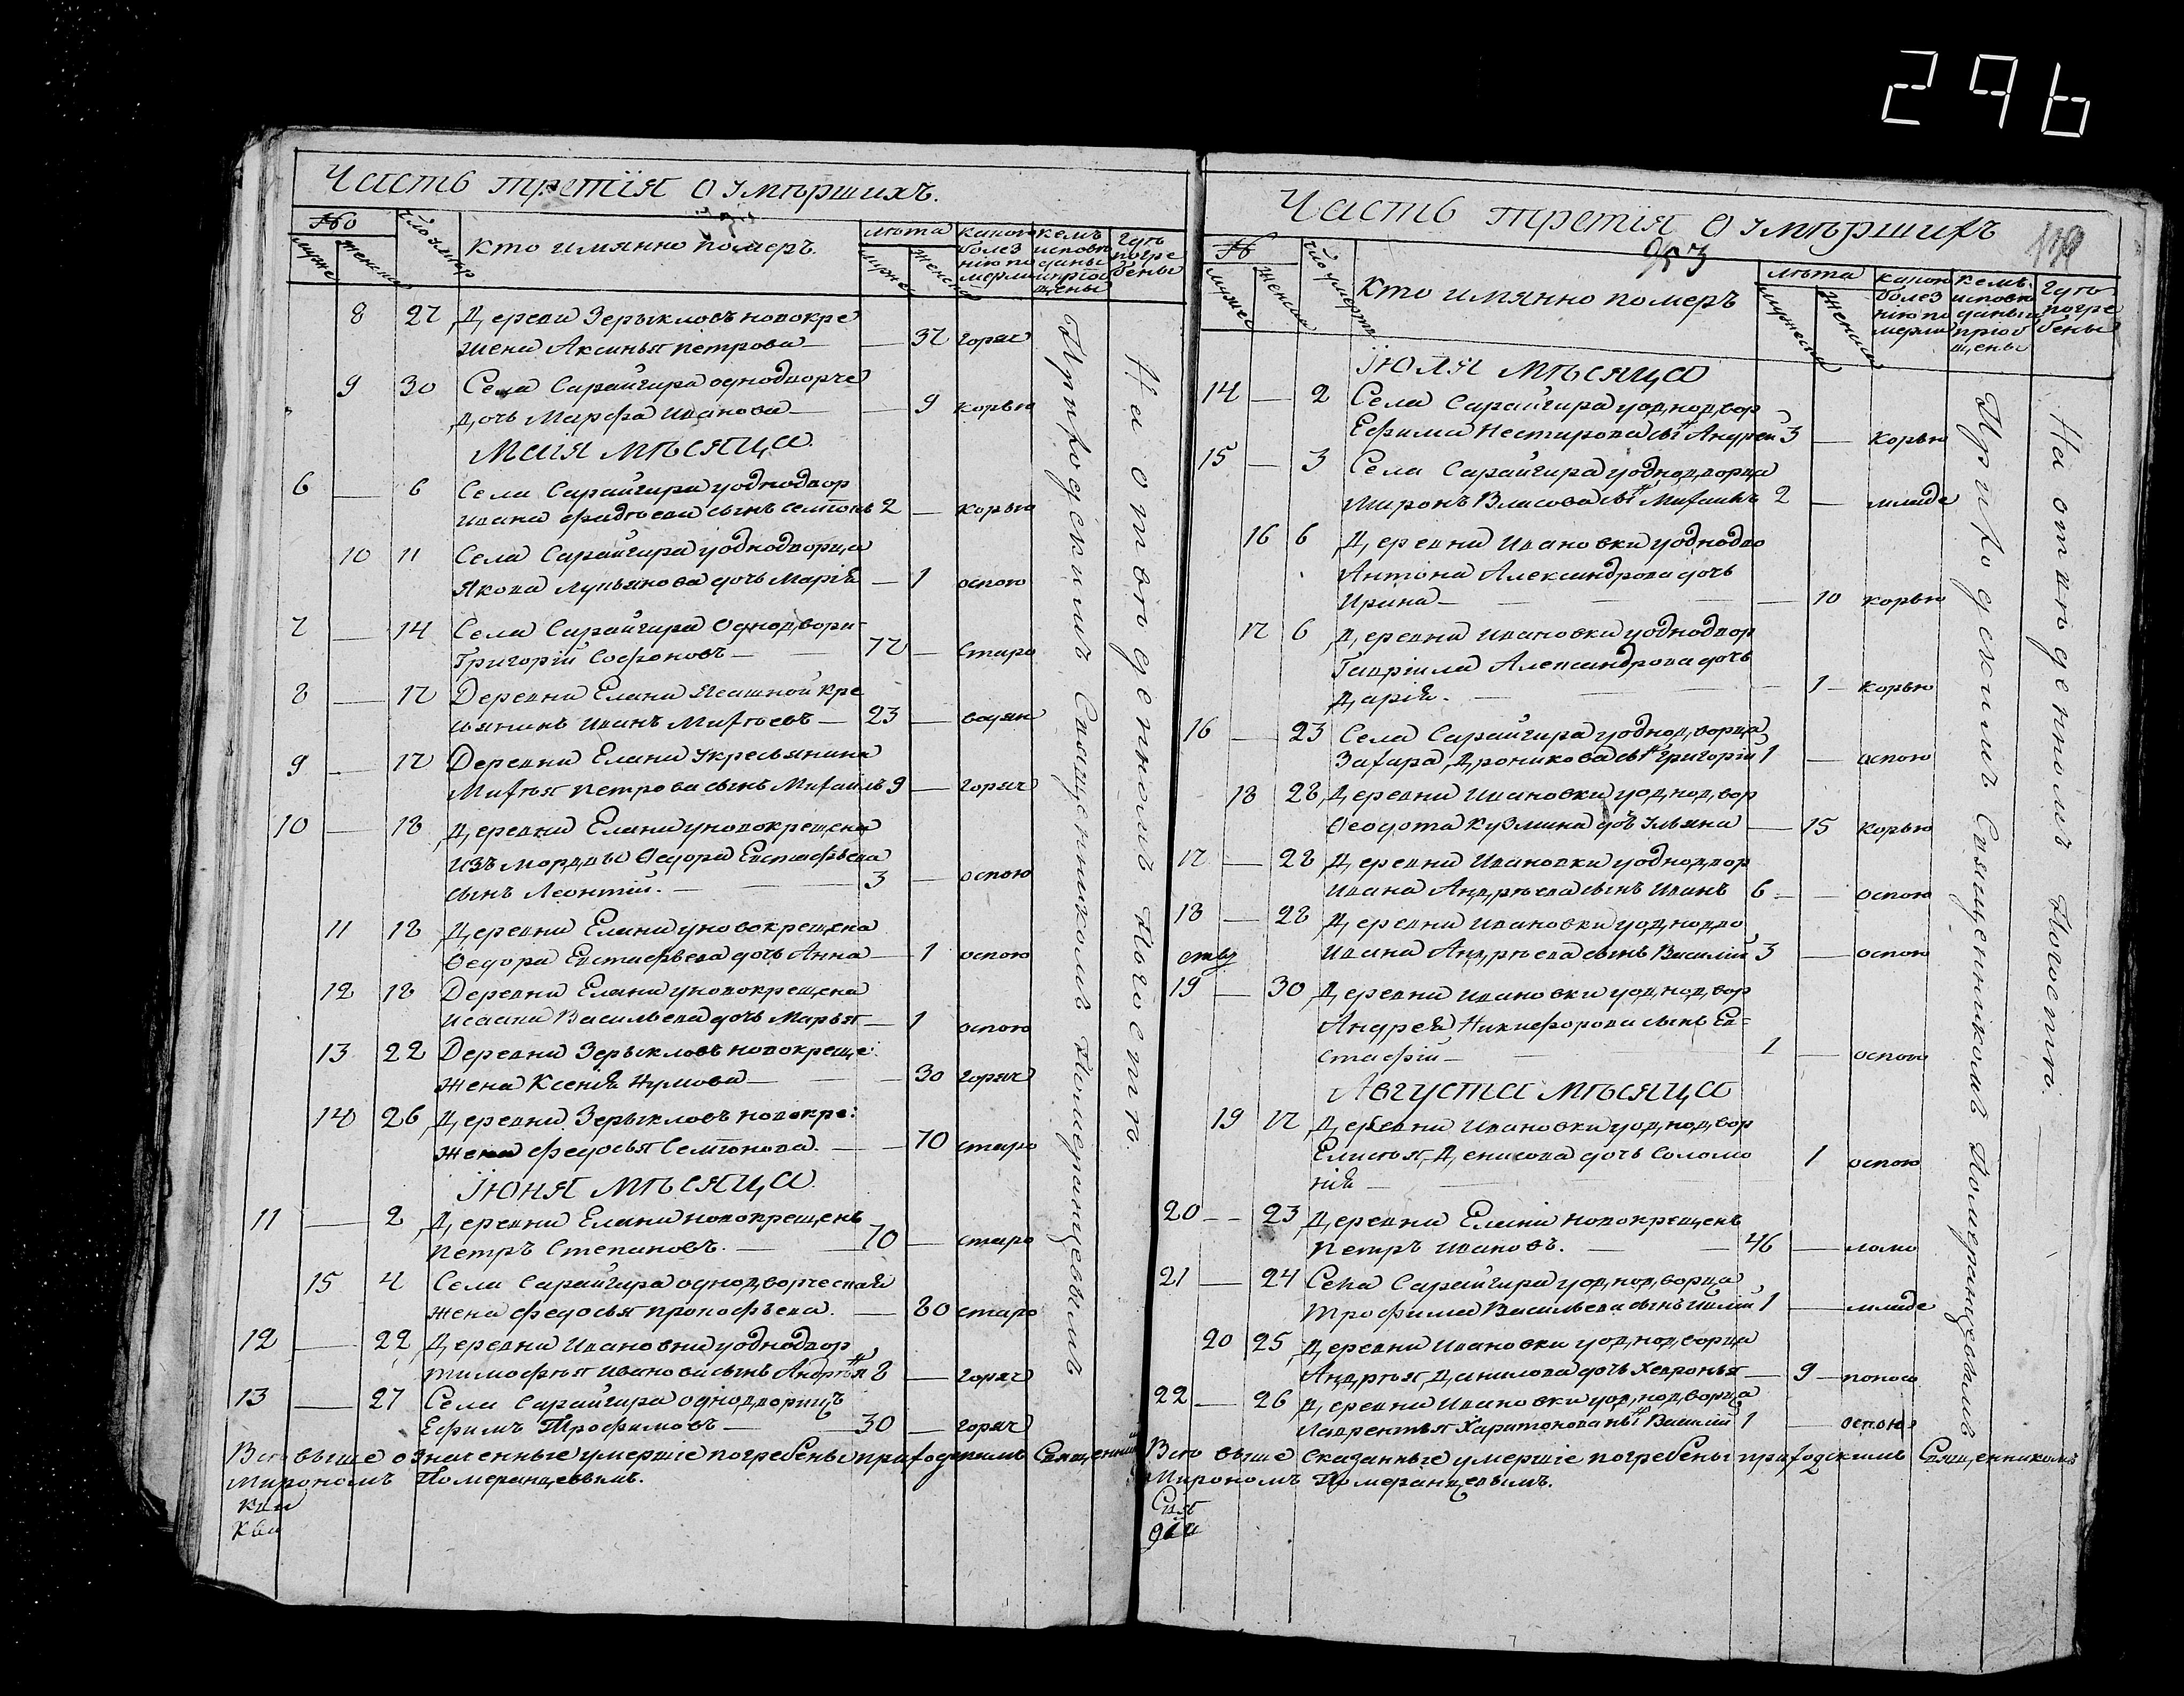 296
Часть третія о умѣршихъ.
№
муже
женска
кто имянно померъ.
лѣта
муже
женска
какою болез
нію по
мерли
кемъ исповѣ
даны
и пріоб
щены
гдѣ
погре
бены
8 27 Деревни Зерыкловъ новокре
жена Аксинья Петрова — 37 горяч
9 30 Села Сараигира однодворче
дочь Марфа Иванова — 9 корью
Маія мѣсяца
6 — 6 Села Сараигира у однодвор
Ивана Фадѣева сынъ Семіонъ 2 — корью
10 11 Села Сараигира у однодворца
Якова Лукьянова дочь Марія — 1 оспою
7 — 14 Села Сараигира Однодвори
Григорій Софоновъ — 77 — старо
8 — 17 Деревни Елани Ясашной кре
стьянинъ Иванъ Михѣевъ — 23 — водян
9 — 17 Деревни Елани у кресьянина
Михѣя Петрова сынъ Михаилъ 9 — горяч
10 — 18 Деревни Елани у новокрещена
изъ мордвы Ѳедора Евстафьева
сынъ Леонтій. — 3 — оспою
11 18 Деревни Елани у новокрещена
Ѳедора Евстафьева дочь Анна — 1 оспою
12 18 Деревни Елани у новокрещена
Исаака Васильева дочь Марья — 1 оспою
13 22 Деревни Зерыкловъ новокреще:
жена Ксенія Наумова — 30 горяч
14 26 Деревни Зерыкловъ новокре:
жена Федосья Семіонова. — 70 старо
Іюня мѣсяца
11 — 2 Деревни Елани новокрещенъ
Петръ Степановъ. — 70 — старо
15 4 Села Сараигира однодворческая
жена Федосья Прокофьева. — 80 старо
12 — 22 Деревни Ивановки у однодвор
Тимофѣя Иванова сынъ Андрѣй 8 — горяч
13 — 27 Села Сараигира однодворицъ
Ефимъ Трофимовъ — 30 — горяч
Приходскимъ Священникомъ Померанцевымъ
На отведенномъ Погостѣ.
Всѣ выше означенные умершіе погребены приходскимъ Священни
Мирономъ Померанцевымъ.
Часть третія о умѣршихъ
953
№
мужес
женска
кто имянно померъ
лѣта
мужеска
женска
какою
болез
нію по
мерли
кемъ
исповѣ
даны и
пріоб
щены
гдѣ
погре
бены
Іюля мѣсяца
14 — 2 Села Сараигира у однодвор
Ефима Нестирова сы Андреи 3 — корью
15 — 3 Села Сараигира у однодворца
Миронъ Власова сы Михаилъ 2 — младе
16 6 Деревни Ивановки у однодво
Антона Александрова дочь
Ирина — 10 корью
17 6 Деревни Ивановки у однодвор
Гавріила Александрова дочь
Дарія. — 1 — корью
16 — 23 Села Сараигира у однодворца
Захара Дроникова сы Григорій 1 — оспою
18 28 Деревни Ивановки у однодвор
Ѳеодота Кузмина доч Ульяна — 15 корью
17 — 28 Деревни Ивановки у однодвор
Ивана Андрѣева сынъ Иванъ 6 — оспою
18 — 28 Деревни Ивановки у однодво
Ивана Андрѣева сынъ Василій 3 — оспою
19 — 30 Деревни Ивановки у однодвор
Андрея Никифорова сынъ Ев=
стафій — 1 — оспою
Августа мѣсяца
19 17 Деревни Ивановки у однодвор
Елисѣя Денисова дочь Соломо
нія — 1 оспою
20 — 23 Деревни Елани новокрещенъ
Петръ Ивановъ. — 46 — ломо
21 — 24 Села Сараигира у однодворца
Трофима Васильева сынъ 1 — младе
20 25 Деревни Ивановки у однодворца
Андрѣя Данилова дочь Хевронья — 9 — поносо
22 — 26 Деревни Ивановки у однодворца
Лаврентья Харитонова Василій 1 — оспою
Приходскимъ Священникомъ Померанцевымъ
На отведенномъ Погостѣ.
Всѣ выше сказанные умершіе погребены приходскимъ Священникомъ
Мирономъ Померанцевымъ.